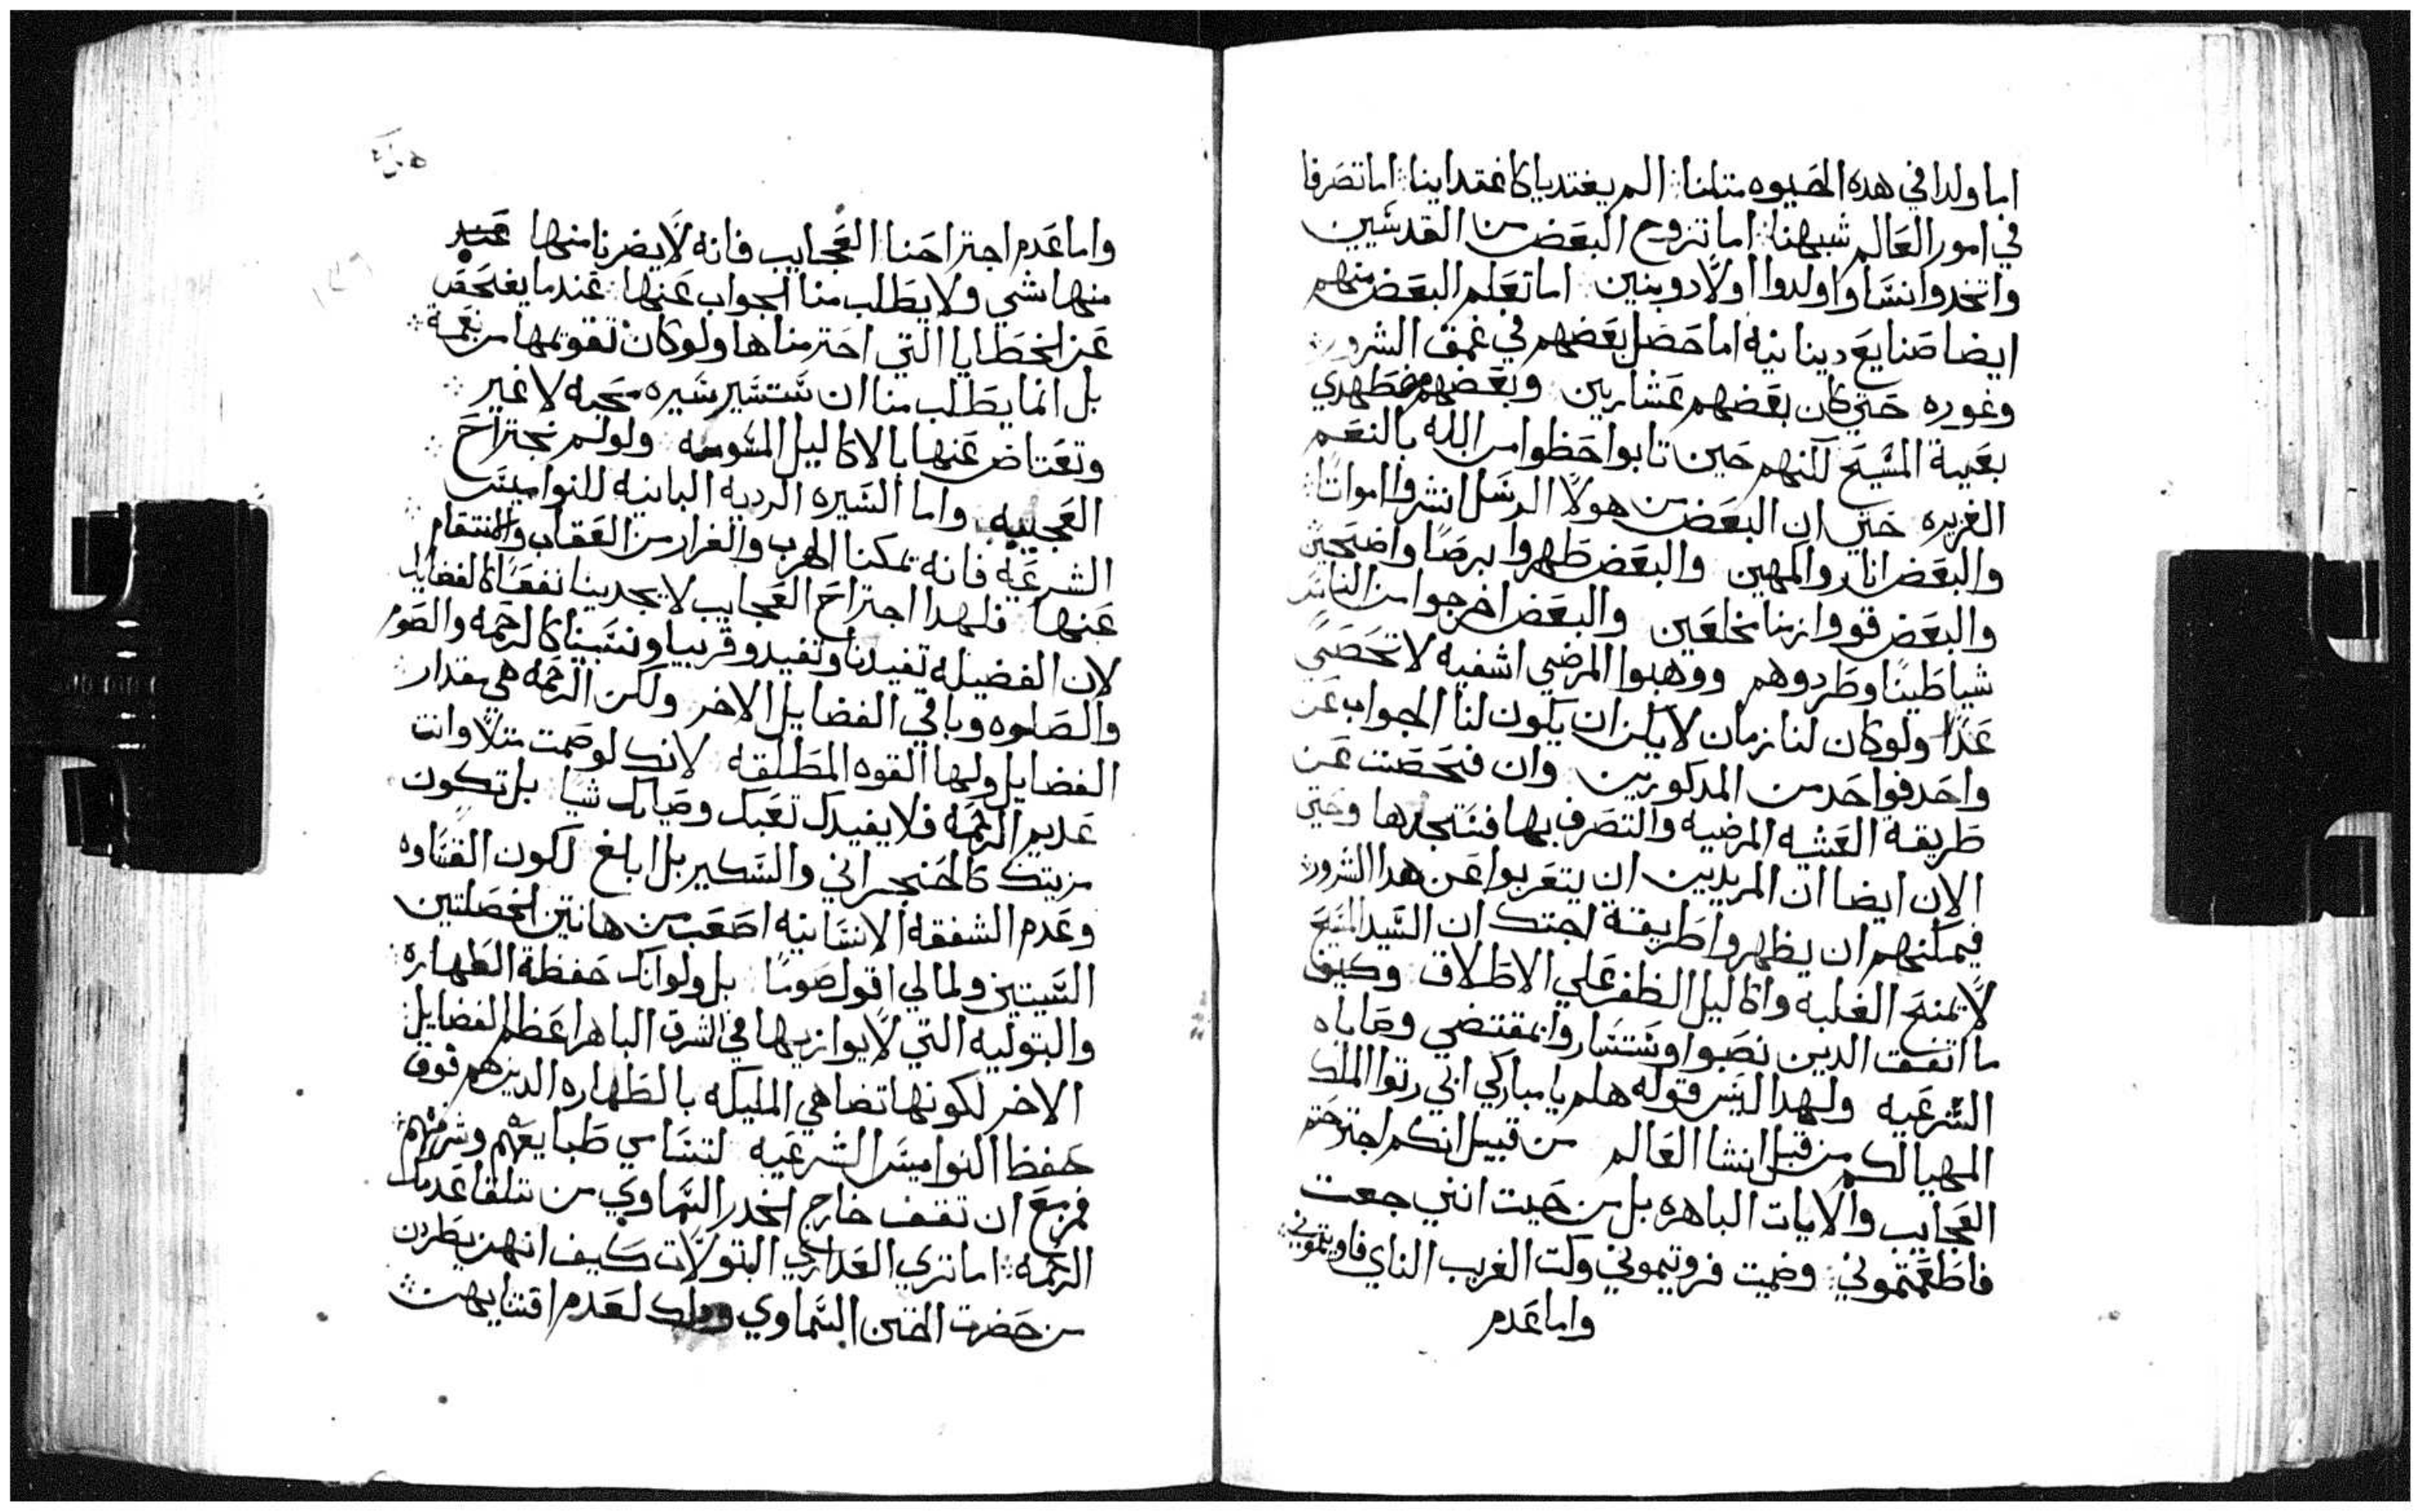 اما ولدا في هده الحيوه متلنا ⁘ الم يغتديا كاغتداينا ⁘ اما تصرفا
في امور العالم شبهنا ⁘ اما تزوج البعض من القدسين
واتخدوا نسا واولدوا اولادا وبنين اما تعلم البعض منهم
ايضا صنايع دينانيه اما حصل بعضهم في غمق الشرور
وغوره حتي كان بعضهم عشارين وبعضهم مضطهدي
بعية المسيح لكنهم حين تابوا حظوا من الله بالنعم
الغزيره حتي ان البعض من هولا الرسل انشروا امواتا ⁘
والبعض اناروا اكمهين والبعض طهروا برصا واضحين
والبعض قووا زمنا مخلعين والبعض اخرجوا من الناس
شياطينا وطردوهم ووهبوا المرضي اشفيه لا تحصي
عدا ولو كان لنا زمان لامكن ان يكون لنا الجواب عن
واحد فواحد من المدكورين وان فحصت عن
طريقة العشيه المرضيه والتصرف بها فستجدها وحتي
الان ايضا ان المريدين ان يتعربوا عن هدا الشرور ⁘
فيمكنهم ان يظهروا طريقة اجتك ان السيد المسيح
لا يمنح الغلبه واكاليل الظفر علي الاطلاق وكيف
ما اتفقت الدين نصبوا وستسار وابمقتضي وصاياه
الشرعيه ولهدا اليس قوله هلم يا مباركي ابي رتوا الملك
المهيا لكم من قبل انشا العالم من قبيل انكم اجترحتم
العجايب والايات الباهره بل من حيت انني جعت
فاطعمتموني ⁘ وضميت فرويتموني وكت الغريب الناي فاويتموني ⁘
واما عدم
واما عدم اجتراحنا العجايب فانه لا يضرنا منها
منها شي ولا يطلب منا الجواب عنها ⁘ عندما يفتحص
عن الخطايا التي احترمناها ولو كان تقويمها من نعمة ⁘
بل انما يطلب منا ان نستسير سيره محبه لا غير ⁘
وتعتاض عنها بالاكاليل ولو لم نجتراح ⁘
العجيبه واما السيره الرديه الباينه للنواميس
الشرعيه فانه تمكنا الهرب والفرار من العقاب والانتقام ⁘
عنها فلهدا اجتراح العجايب لا يجدينا نفعا كالفضايل
لان الفضيله تفيدنا وتفيد وقريبا ونسبينا كالرحمه والصوم
والصلوه وباقي الفضايل الاخر ولكن الرحمه هي مقدار
الفضايل ولها القوه المطلقه لانك لو صمت متلا وانت
عديم الرحمه فلا يفيدك تعبك وصيامك شيا بل تكون
مزيتك كالحنجراني والسكير بل ابلغ لكون القساوه
وعدم الشفقه الانسانيه اصعب من هاتين الخصلتين
السيتين ولمالي اقول صوما بل ولو انك حفظة الطهاره ⁘
والبتوليه التي لا يوازيها في الشرف الباهر اعظم الفضايل
الاخر لكونها تضاهي المليكه بالطهاره الدين هم فوق
حفظ النواميس الشرعيه لتسامي طبايعهم وشرفهم ⁘
فمزمع ان تقف خارج الخدر السماوي من تلقا عدمك
الرحمه ⁘ اما تري العداري البتولات كيف انهن يطردن
من حضرت الختن السماوي ودلك لعدم اقتنايهن ⁘